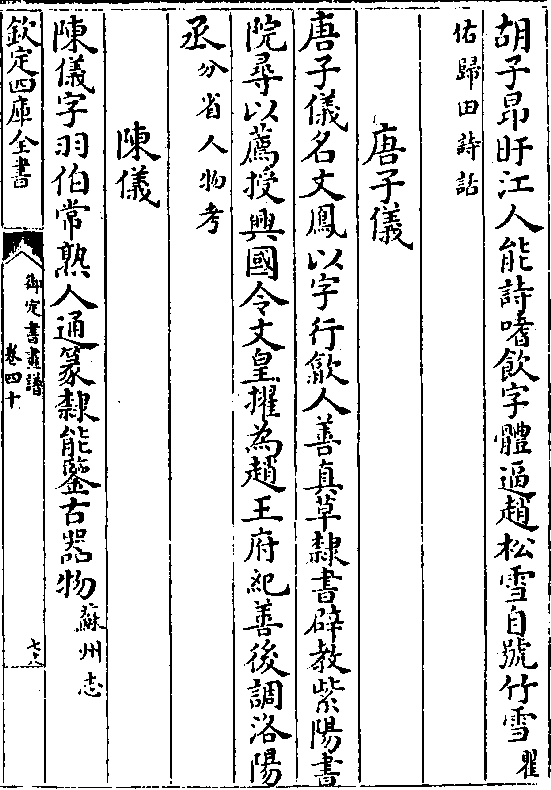 胡子昂旴江人能詩嗜飲字體逼趙松雪自號竹雪瞿
佑歸田詩話
唐子儀
唐子儀名文鳳以字行歙人善真草隸書辟教紫陽書
院尋以薦授興國令文皇擢為趙王府紀善後調洛陽
丞分省人物考
陳儀
陳儀字羽伯常熟人通篆隸能鑒古器物蘇州志
欽定四庫全書
御定書畫譜
卷四十